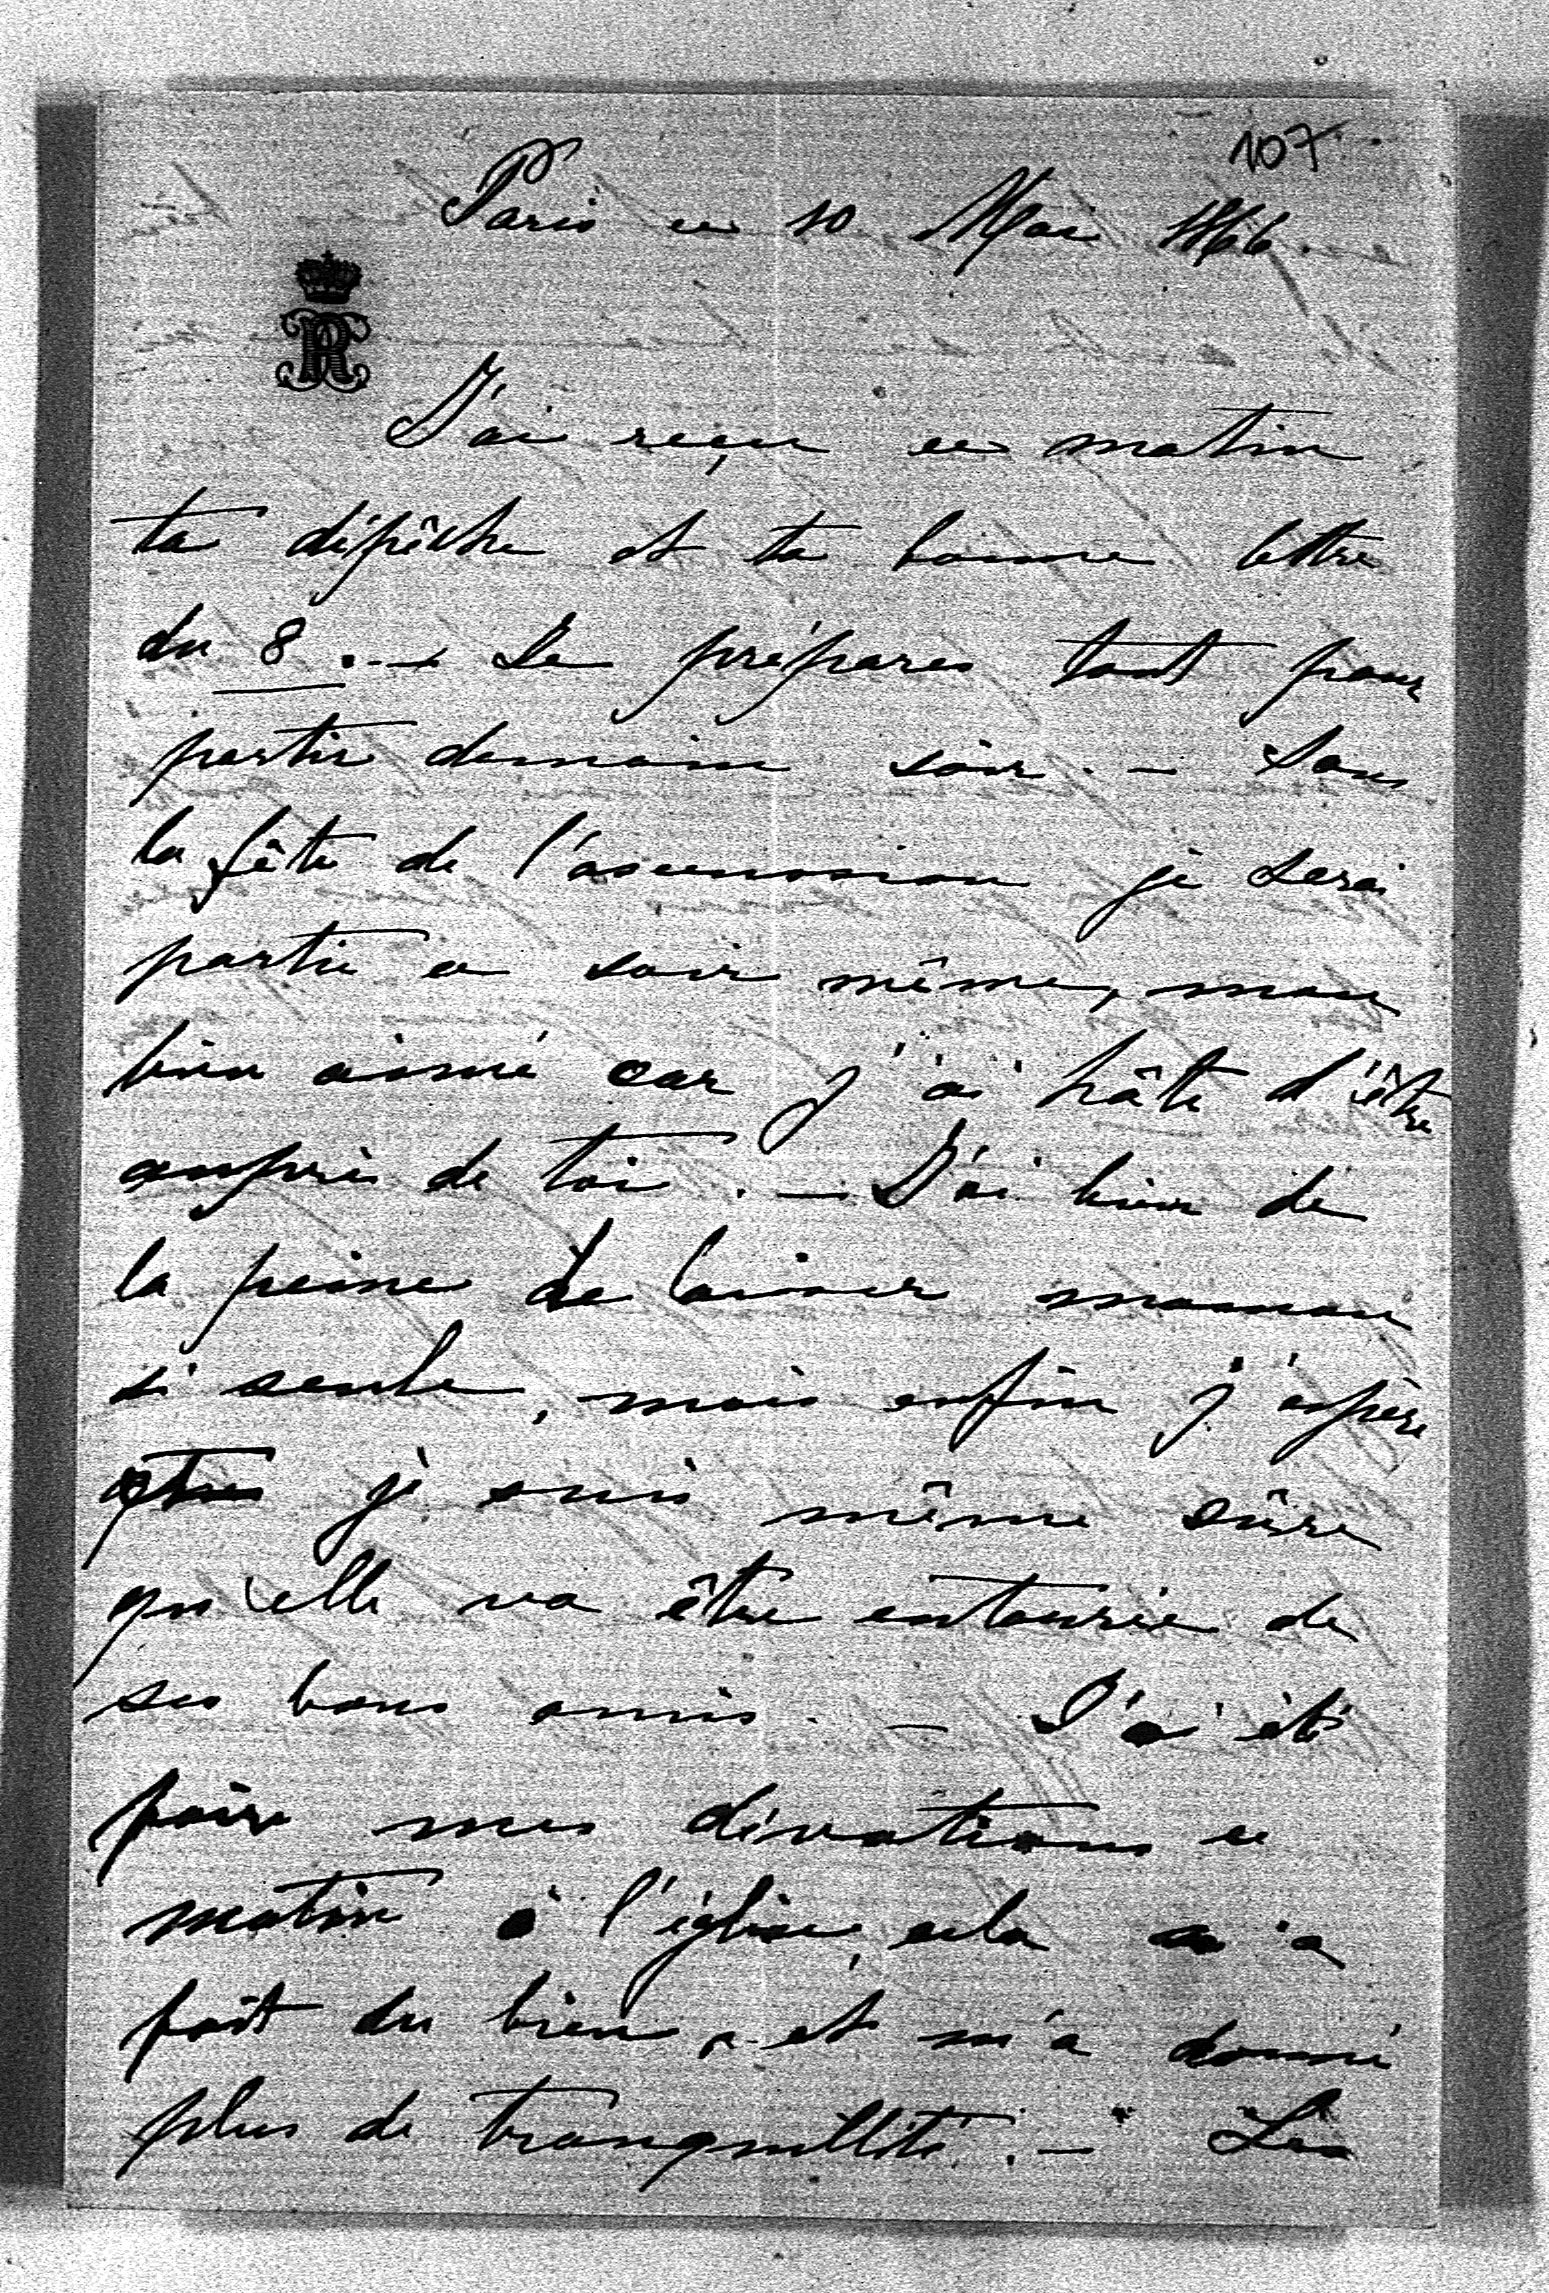 107
Paris ce 10 Mai 1866.
J'ai reçu ce matin
ta dépêche et ta bonne lettre
du 8. — Je prépare tout pour
partir demain soir. — Sans
la fête de l'ascension je serai
partie ce soir même, mon
bien aimé car j'ai hâte d'être
auprès de toi. — J'ai bien de
la peine de laisser maman
si seule, mais enfin j'espère
je suis même sûre
qu'elle va être entourée de
ses bons amis. — J'ai été
faire mes dévotions ce
matin à l'église, cela m'a
fait du bien, et m'a donné
plus de tranquillité. — Les